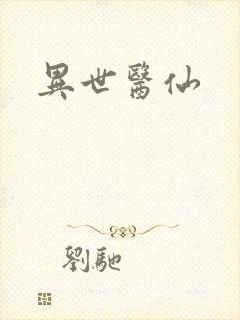 異世醫仙
劉馳